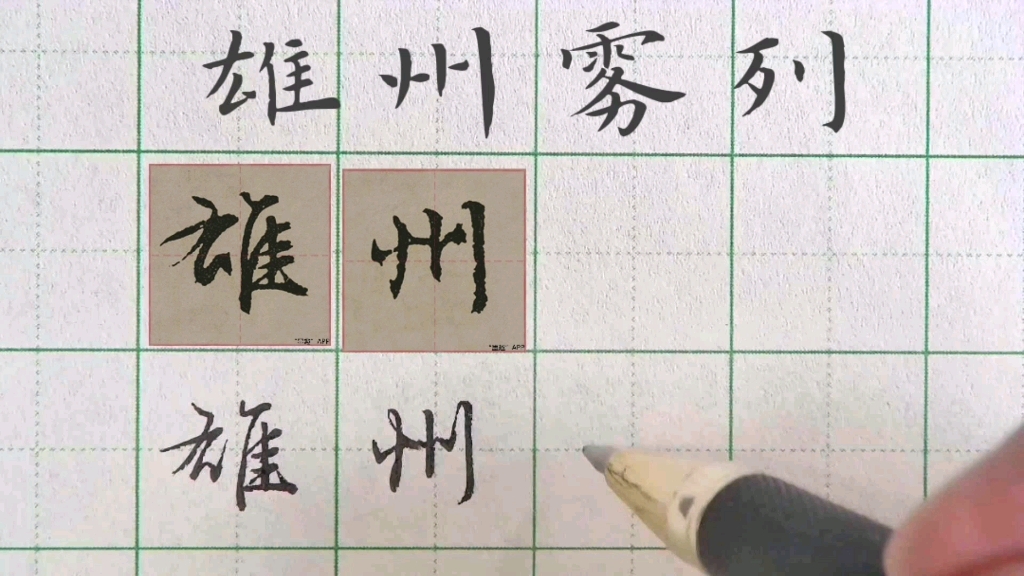 雄州雾列
雄州
雄州